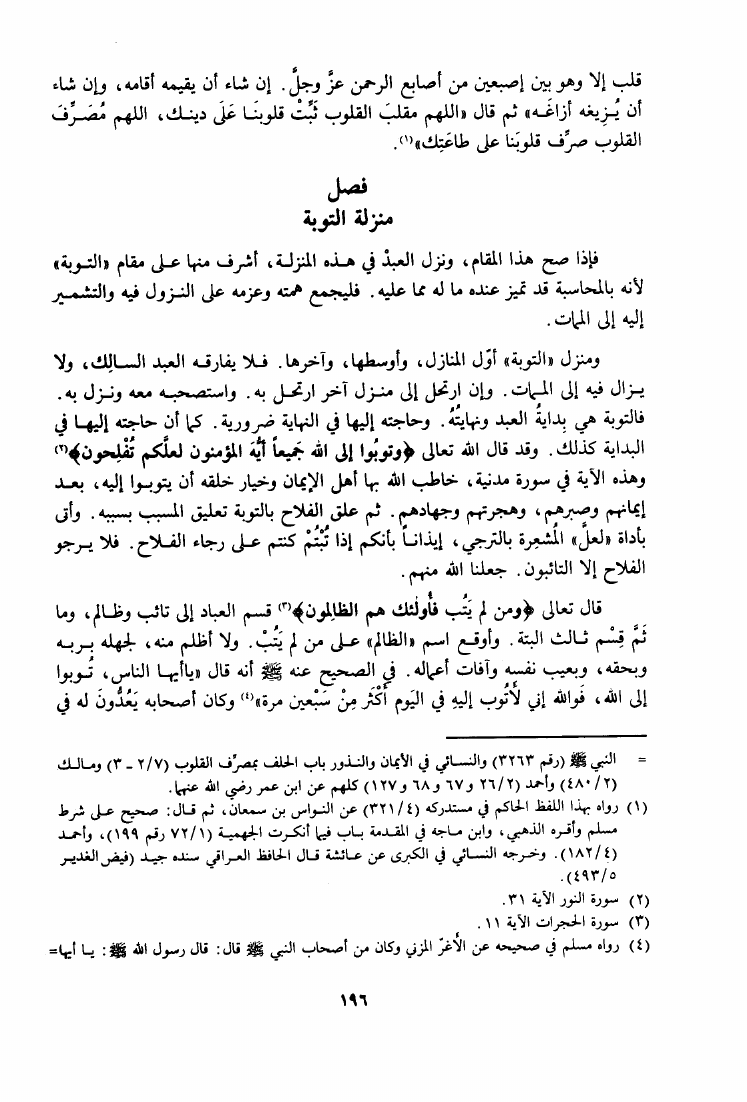 قلب إلا وهو بين إصبعين من أصابع الرحمن عزَّ وجلَّ. إن شاء أن يقيمه أقامه، وإن شاء
أن يُزِيغه أزاغَـه» ثم قال «اللهم مقلبَ القلوب ثَبِّتْ قلوبنَـا عَلَى دينـك، اللهم مُصَـرِّفَ
القلوب صرِّف قلوبَنا على طاعَتِك»(١).
فصل
منزلة التوبة
فإذا صح هذا المقام، ونزل العبدُ في هـذه المنزلـة، أشرف منها عـلى مقام «التـوبة»
لأنه بالمحاسبة قد تميز عنده ما له مما عليه. فليجمع همته وعزمه على النـزول فيه والتشمـير
إليه إلى الممات.
ومنزل «التوبة» أوّل المنازل، وأوسطها، وآخرها. فـلا يفارقـه العبد السـالِك، ولا
يـزال فيه إلى المـمات. وإن ارتحل إلى منـزل آخر ارتحـل به. واستصحبـه معه ونـزل به.
فالتوبة هي بِدايةُ العبد ونهايتُهُ. وحاجته إليها في النهاية ضرورية. كما أن حاجته إليهـا في
البداية كذلك. وقد قال الله تعالى ﴿وتوبُوا إلى الله جَميعاً أيُّهَ المؤمنون لعلَّكم تُفْلِحون﴾(٢)
وهذه الآية في سورة مدنية، خاطب الله بها أهل الإيمان وخيار خلقه أن يتوبـوا إليه، بعـد
إيمانهم وصبرهم، وهجرتهم وجهادهم. ثم علق الفلاح بالتوبة تعليق المسبب بسببه. وأتى
بأداة «لعلَّ» المُشعِرة بالترجي، إيذانـاً بأنكم إذا تُبْتُمْ كنتم عـلى رجاء الفـلاح. فلا يـرجو
الفلاح إلا التائبون. جعلنا الله منهم.
قال تعالى ﴿ومن لم يَتُب فأُولئك هم الظالِمون﴾(٣) قسم العباد إلى تائب وظـالم، وما
ثَمَّ قِسْم ثـالث البتة. وأوقـع اسم «الظالم» عـلى من لم يَتُبْ. ولا أظلم منه، لجهله بـربـه
وبحقه، وبعيب نفسه وآفات أعماله. في الصحيح عنه ﷺ أنه قال «ياأيهـا الناس، تُـوبوا
إلى الله، فَوالله إني لأَتُوب إليهِ في اليَوم أَكْثَر مِنْ سَبْعين مرة»(٤) وكان أصحابه يَعُدُّونَ له في
= النبي ﷺ (رقم ٣٢٦٣) والنسـائي في الأيمان والنـذور باب الحلف بمصرِّف القلوب (٢/٧ ـ ٣) ومـالـك
(٤٨٠/٢) وأحمد (٢٦/٢ و ٦٧ و ٦٨ و ١٢٧) كلهم عن ابن عمر رضي الله عنهما.
(١) رواه بهذا اللفظ الحاكم في مستدركه (٣٢١/٤) عن النـواس بن سمعان، ثم قـال: صحيح عـلى شرط
مسلم وأقـره الذهبي، وابن مـاجه في المقدمة بـاب فيما أنكـرت الجهميـة (٧٢/١ رقم ١٩٩)، وأحمـد
(١٨٢/٤). وخـرجه النسـائي في الكبرى عن عـائشة قـال الحافظ العـراقي سنده جيـد (فيض الغديـر
٤٩٣/٥).
(٢) سورة النور الآية ٣١.
(٣) سورة الحجرات الآية ١١.
(٤) رواه مسلم في صحيحه عن الأغرّ المزني وكان من أصحاب النبي ﷺ قال: قال رسول الله ﷺ: يـا أيها=
١٩٦